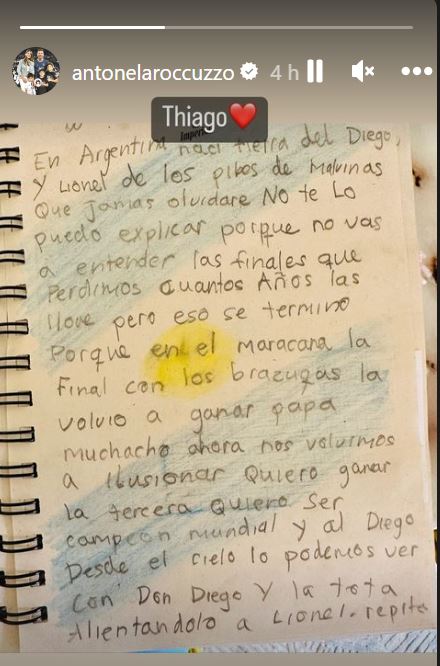 antonelaroccuzzo 4 h
Thiago
En Argentina naci tierra del Diego,
y Lionel de los pibes de Malvinas
Que jamas olvidare No te Lo
puedo explicar porque no vas
a entender las finales que
Perdimos cuantos Años las
llore pero eso se termino
Porque en el maracana la
Final con los brazucas la
volvio a ganar papa
muchacho ahora nos volvimos
a ilusionar Quiero ganar
la tercera Quiero Ser
campeon mundial y al Diego
Desde el cielo lo podemos ver
Con Don Diego Y la tota
Alientandolo a Lionel. repite